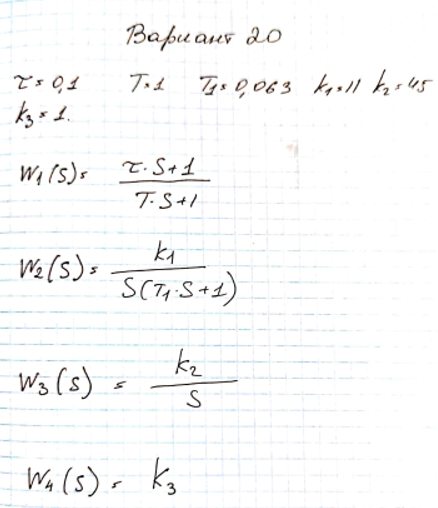 Вариант 20
τ = 0,1 T=1 T1=0,063 k1=11 k2=45
k3=1.
W1(S)= τ·S+1 / T·S+1
W2(S)= k1 / S(T1·S+1)
W3(S) = k2 / S
W4(S) = k3